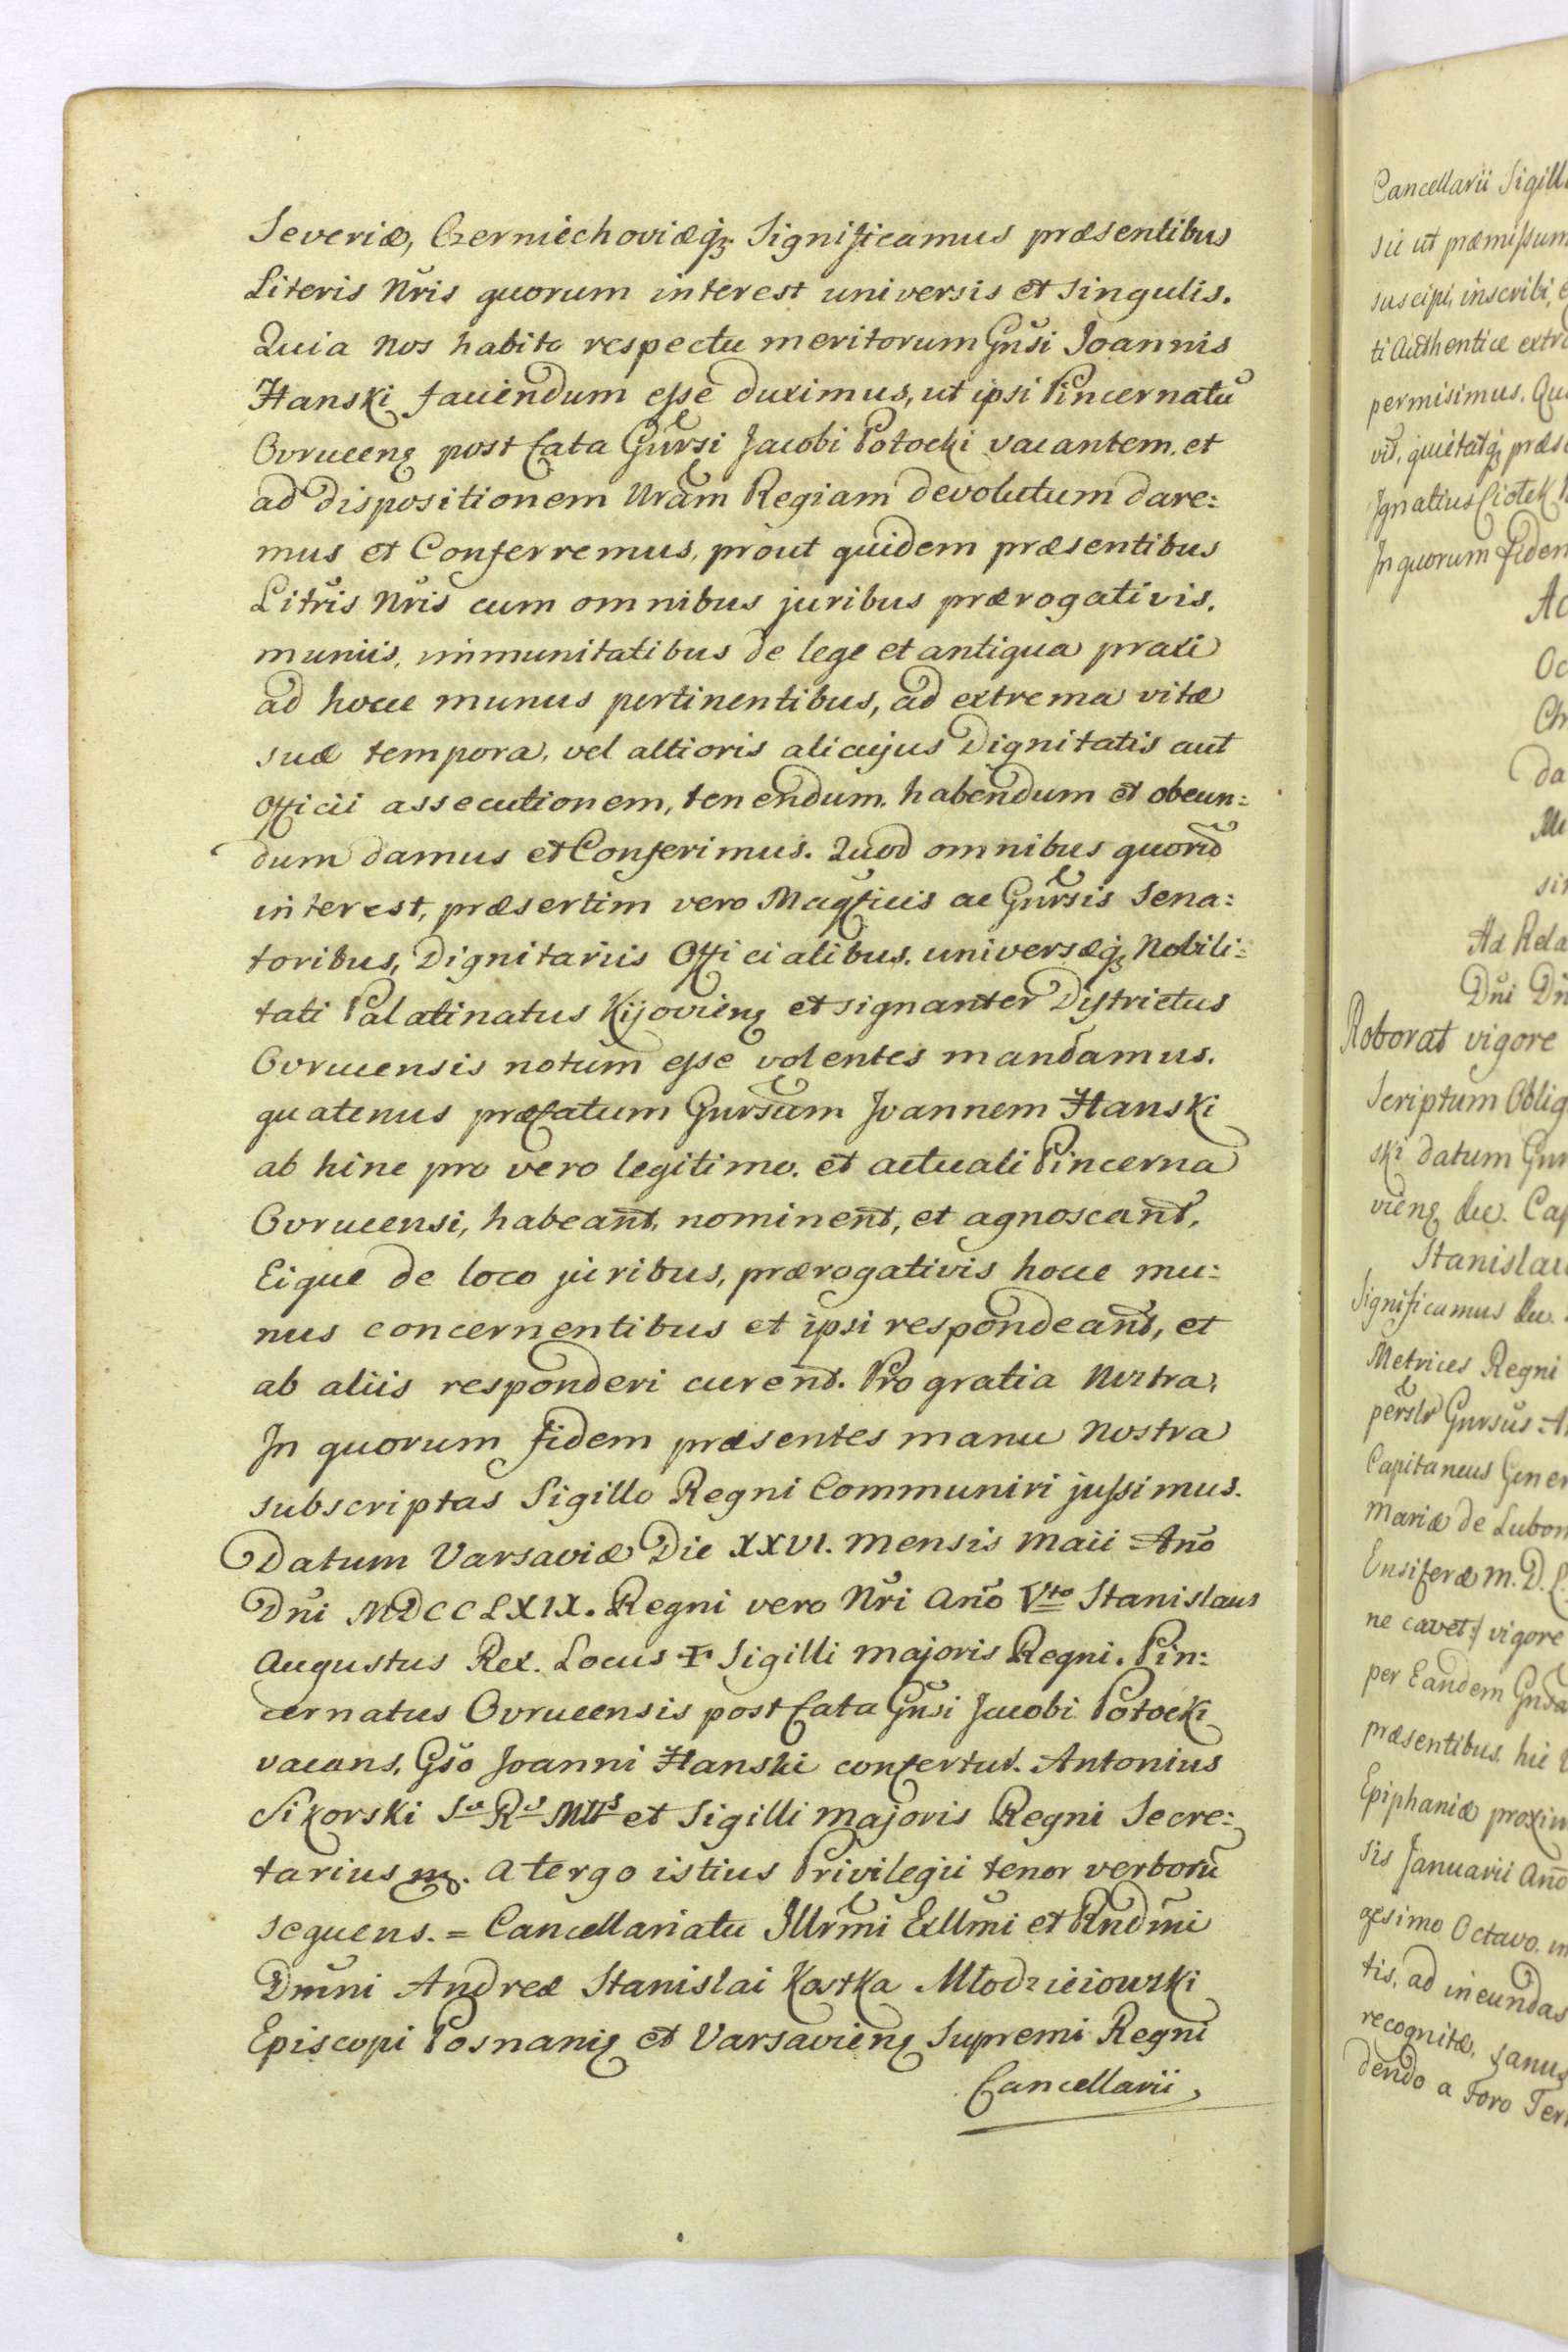 Severiæ, Czerniechoviæq̃ꝫ Significamus præsentibus
Literis Nr̃is quorum interest universis et singulis.
Quia nos habito respectu meritorum Gñsi Joannis
Hanski faciendum esse duximus, ut ipsi Pincernatũ
Ovrucenꝫ post fata Gnrsi Jacobi Potocki vacantem, et
ad dispositionem Nram Regiam devolutum dare:
mus et Conferremus, prout quidem præsentibus
Litr̃is Nr̃is cum omnibus juribus prærogativis,
muniis, immunitatibus de lege et antiqua praxi
ad hocce munus pertinentibus, ad extrema vitæ
suæ tempora, vel altioris alicujus Dignitatis aut
Officii assecutionem, tenendum, habendum et obeun:
dum damus et Conferimus. Quod omnibus quorũ
interest, præsertim vero Magficis ac Gnrsis Sena:
toribus, Dignitariis Officialibus, universæq̃ꝫ Nobili:
tati Palatinatus Kijovienꝫ et signanter Districtus
Ovrucensis notum esse volentes mandamus,
quatenus præfatum Gnrsum Joannem Hanski
ab hinc pro vero legitimo, et actuali Pincerna
Ovrucensi, habeant, nominent, et agnoscant,
Eique de loco juribus, prærogativis hocce mu:
nus concernentibus et ipsi respondeant, et
ab aliis responderi curent. Pro gratia Nostra,
In quorum fidem præsentes manu nostra
subscriptas Sigillo Regni Communiri jussimus.
Datum Varsaviæ Die XXVI. mensis Maii Anõ
Dñi MDCCLXIX. Regni vero Nr̃i Anõ Vto Stanislaus
Augustus Rex. Locus ☩ Sigilli majoris Regni. Pin:
cernatus Ovrucensis post fata Gñsi Jacobi Potocki
vacans, Gsõ Joanni Hanski confertur. Antonius
Sikorski Sæ Ræ Mttis et Sigilli majoris Regni Secre:
tarius mp. A tergo istius Privilegii tenor verborũ
sequens. = Cancellariatu Illr̃mi Exllm̃i et Rndm̃i
Dmñi Andreæ Stanislai Kostka Młodzieiowski
Episcopi Posnanieꝫ et Varsavienꝫ Supremi Regni
Cancellarii,
Cancellarii Sigill
sic ut præmissum
suscipi, inscribi,
ti Authentice extra
permisimus. Qu
vis, quietatq̃ꝫ præs
Ignatius Ciołek
In quorum fidem
Ac
Oc
Ch
da
Me
sin
Ad Rela
Dñi Dñ
Roborat vigore
Scriptum Oblig
ski datum Gnr
vienꝫ &c. Cap
Stanislau
Significamus &c.
Metrices Regni
perslr Gnrsus A
Capitaneus Gener
Mariæ de Lubom
Ensiferæ M. D. L.
ne cavet:/ vigore
per Eandem Gnsa
præsentibus, hic
Epiphaniæ proxim
sis Januarii Anõ
gesimo Octavo, in
tis, ad ineundas
recognitæ, sanus
dendo a Foro Terr